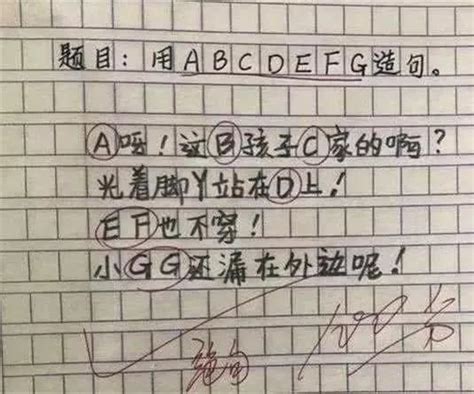 题目：用ABCDEFG造句。
A呀！这B孩子C家的啊？
光着脚丫站在D上！
EF也不穿！
小GG还漏在外边呢！
100分
绝句